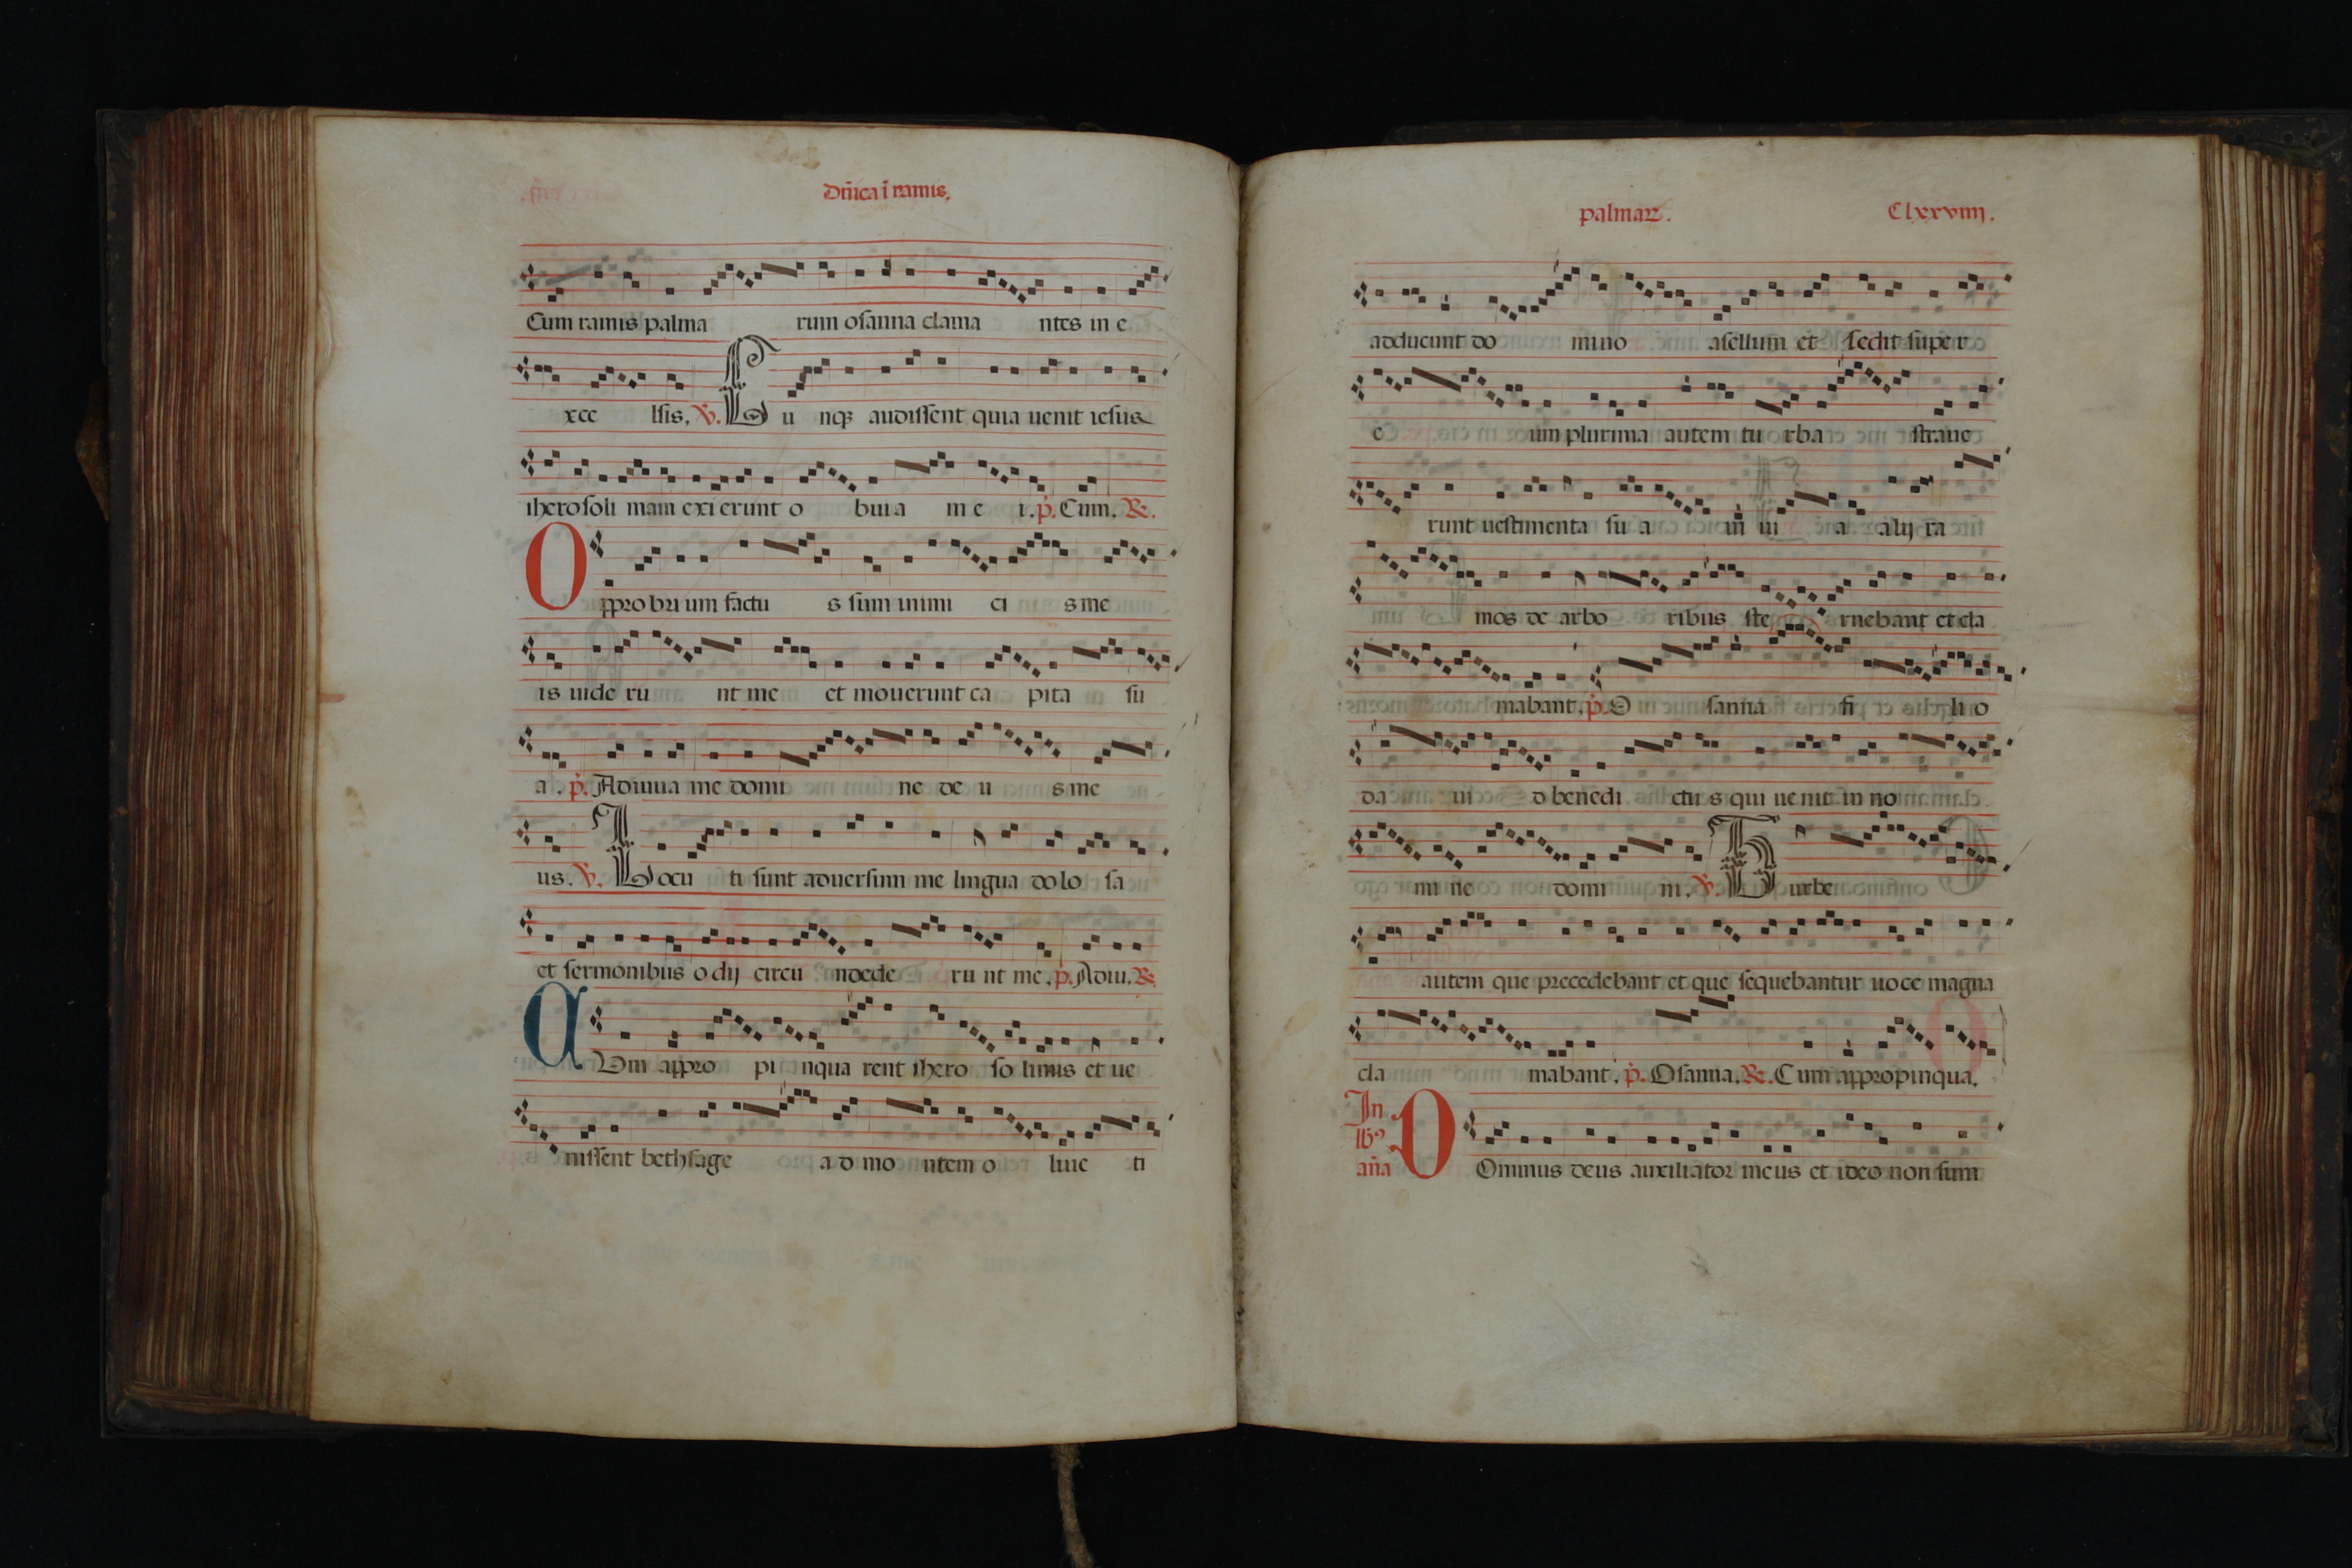 Dñica ĩ ramis.
Cum ramis palma rum osanna clama ntes in e
xce lsis. V. C u nq; audissent quia uenit iesus
iherosoli mam exi erunt o buia m e i. p. Cum. R.
O pprobri um factu s sum inimi ci s me
is uide ru nt me et mouerunt ca pita su
a. p. Adiuua me domi ne de u s me
us. V. L ocu ti sunt aduersum me lingua dolo sa
et sermonibus o dij circu ndede ru nt me. p. Adiu. R.
C Um appro pi nqua rent ihero so limis et ue
nissent bethfage a d mo ntem o liue ti
palmarz. Clxxviiij.
adducunt do mino asellum et sedit supe r
e um plurima autem tu rba straue
runt uestimenta su a in ui a alij ra
mos de arbo ribus ste rnebant et cla
mabant. p. O sanna fi li o
da ui d benedi ctu s qui ue nit in no
mi ne domi ni. V. T urbe
autem que precedebant et que sequebantur uoce magna
cla mabant. p. Osanna. R. Cum appropinqua.
In
lbꝰ
añа D Ominus deus auxiliator meus et ideo non sum